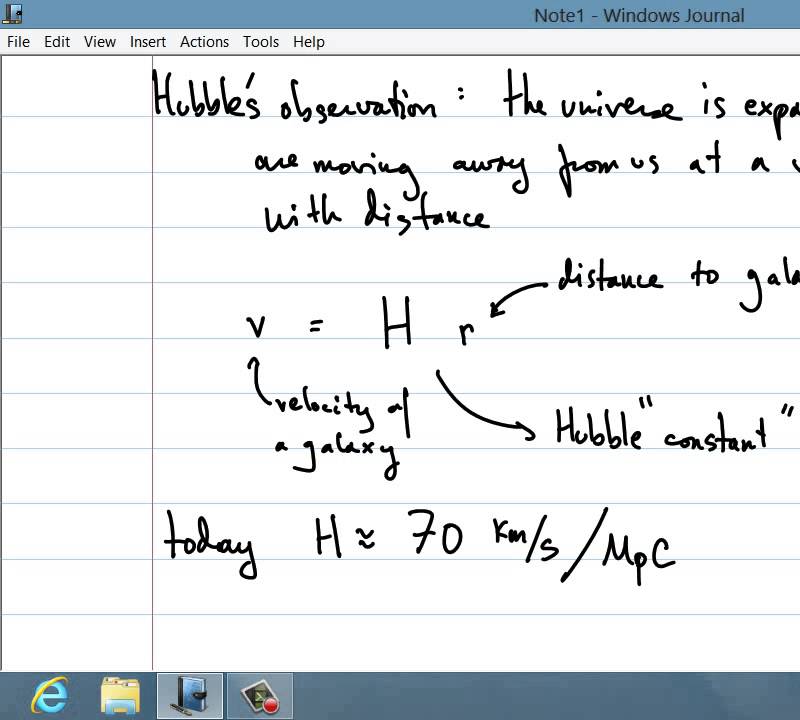 Note1 - Windows Journal
File Edit View Insert Actions Tools Help
Hubble's observation : the universe is expa
are moving away from us at a v
with distance
distance to gala
v = H r
velocity of
a galaxy
Hubble "constant"
today H ≈ 70 km/s/Mpc